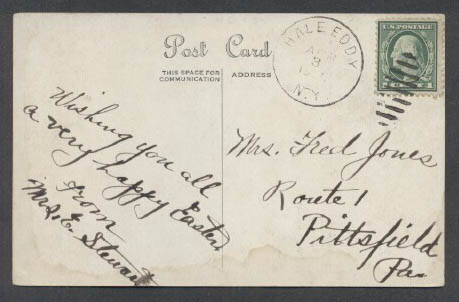 Post Card
THIS SPACE FOR
COMMUNICATION
ADDRESS
HALE EDDY
APR
3
N.Y.
U.S. POSTAGE
Wishing you all
a very happy Easter
from
Mrs. E. Stewart
Mrs. Fred Jones
Route 1
Pittsfield
Pa.